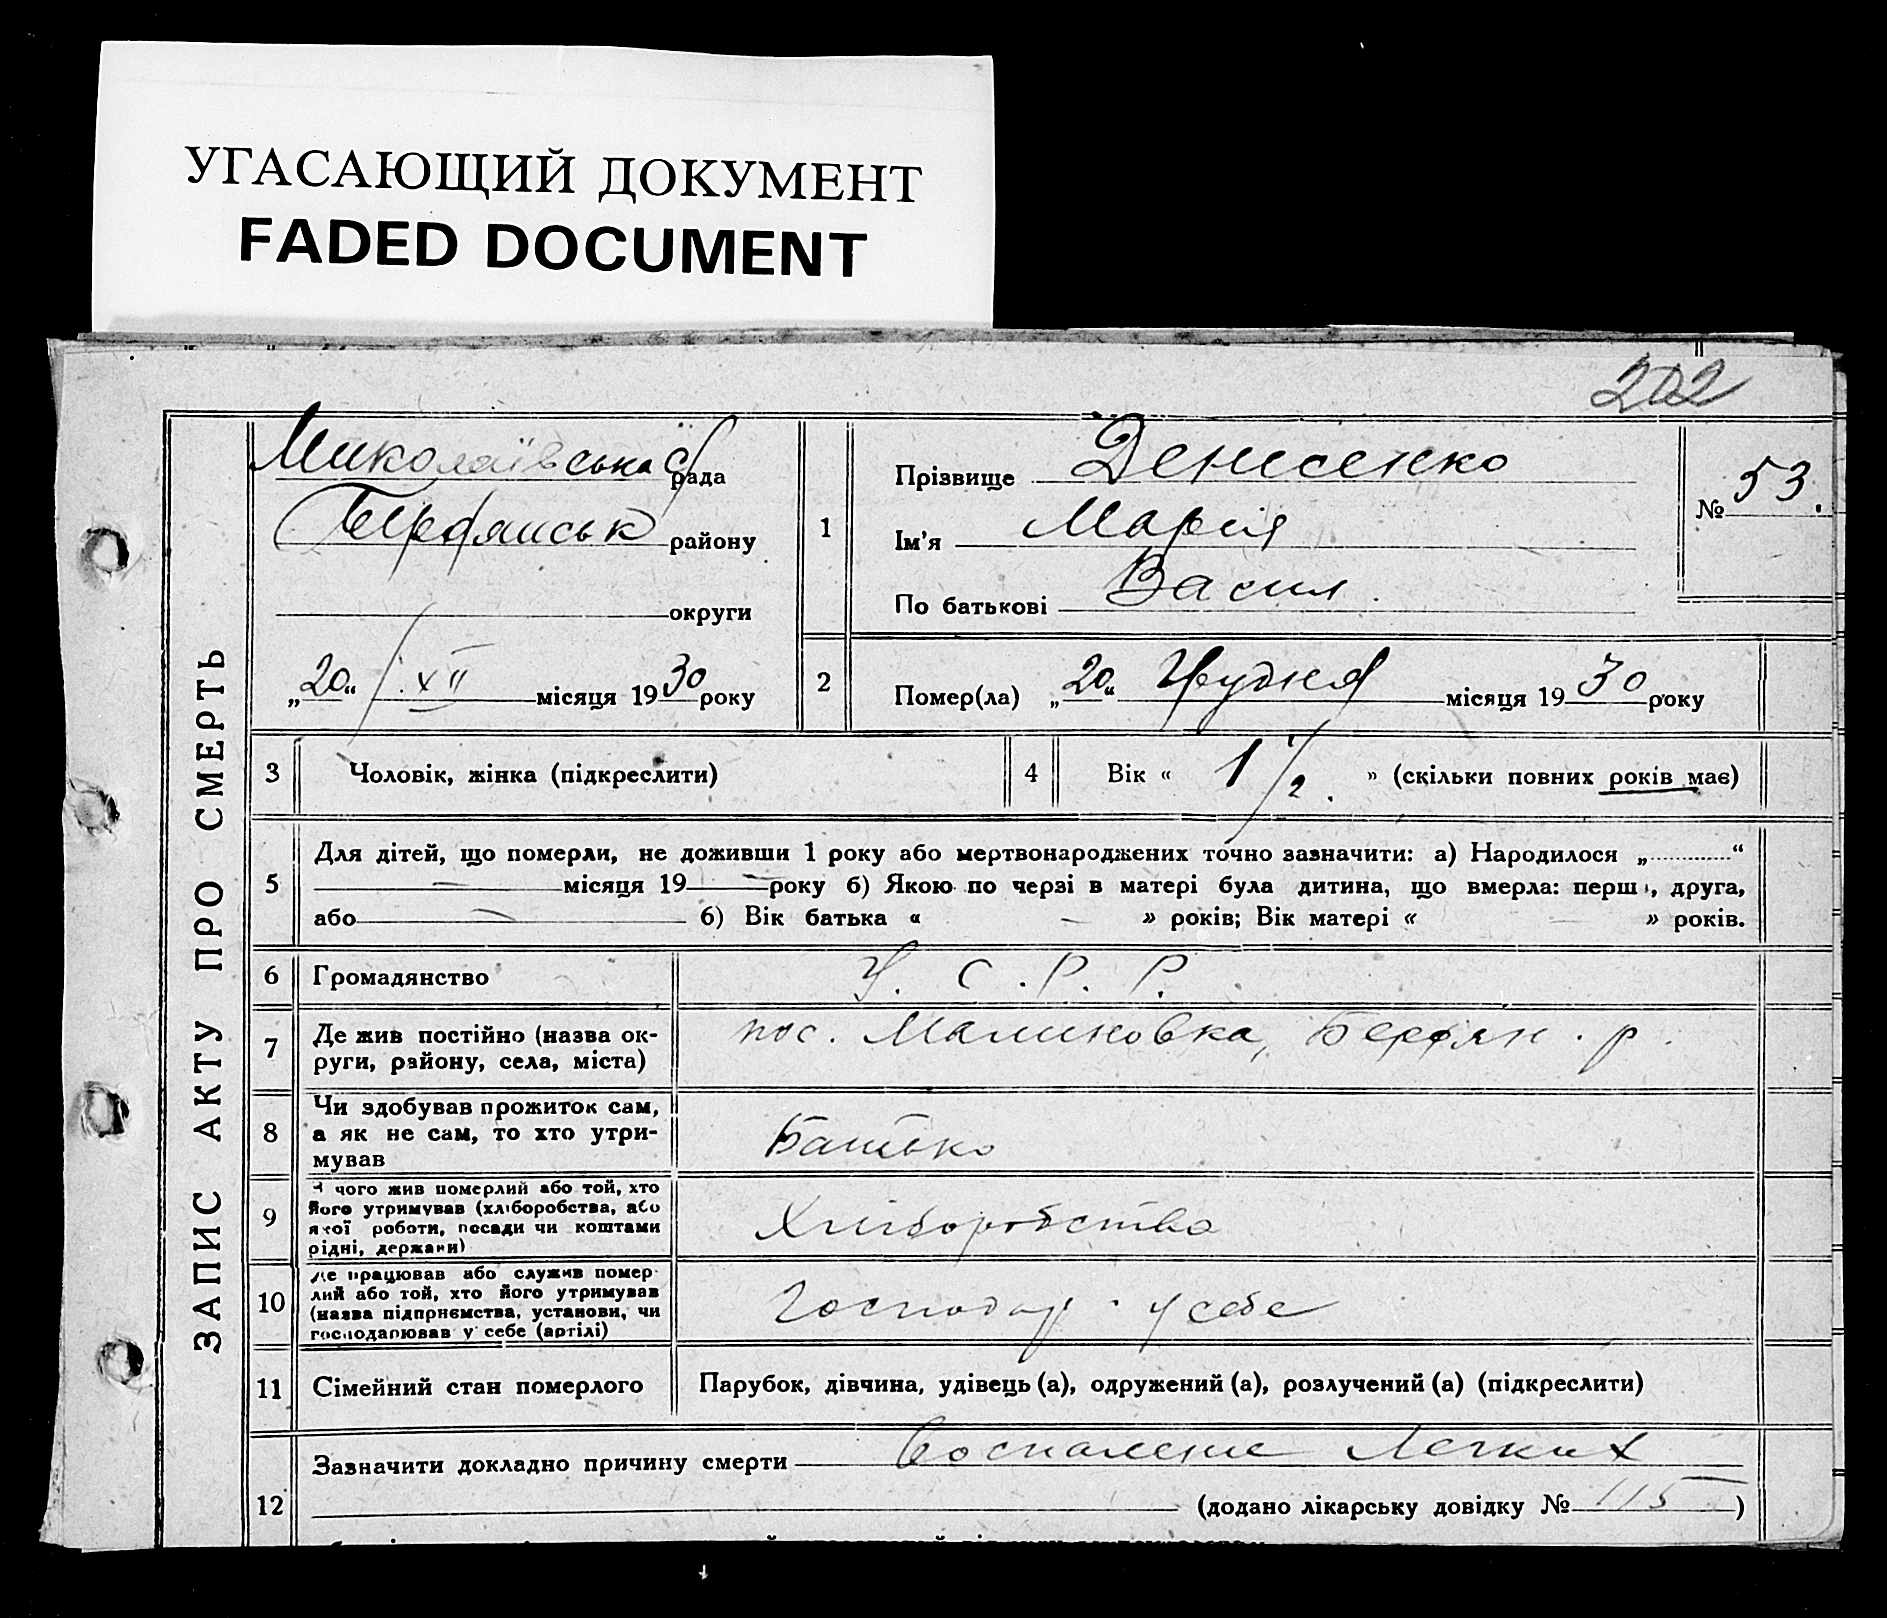 УГАСАЮЩИЙ ДОКУМЕНТ
FADED DOCUMENT
202
ЗАПИС АКТУ ПРО СМЕРТЬ
Миколаївська с/рада
Бердянськ району
округи
„20“ XII місяця 1930 року
1
Прізвище Денисенко
Ім'я Марія
По батькові Васил.
№ 53.
2
Помер(ла) „20“ Грудня місяця 1930 року
3 Чоловік, жінка (підкреслити)
4 Вік « 1 1/2. » (скільки повних років має)
5
Для дітей, що померли, не доживши 1 року або мертвонароджених точно зазначити: а) Народилося „............“
— місяця 19 — року б) Якою по черзі в матері була дитина, що вмерла: перша, друга,
або — б) Вік батька « — » років; Вік матері « — » років.
6 Громадянство У. С. Р. Р.
7 Де жив постійно (назва ок-
руги, району, села, міста)
пос. Малиновка, Бердян. р.
8 Чи здобував прожиток сам,
а як не сам, то хто утри-
мував
Батько
9 З чого жив померлий або той, хто
його утримував (хліборобства, або
якої роботи, посади чи коштами
рідні, держави)
Хліборобство
10 Де працював або служив помер-
лий або той, хто його утримував
(назва підприємства, установи, чи
господарював у себе (артілі)
Господар. у себе
11 Сімейний стан померлого Парубок, дівчина, удівець (а), одружений (а), розлучений (а) (підкреслити)
12
Зазначити докладно причину смерти Воспаление Легких
(додано лікарську довідку № 115)